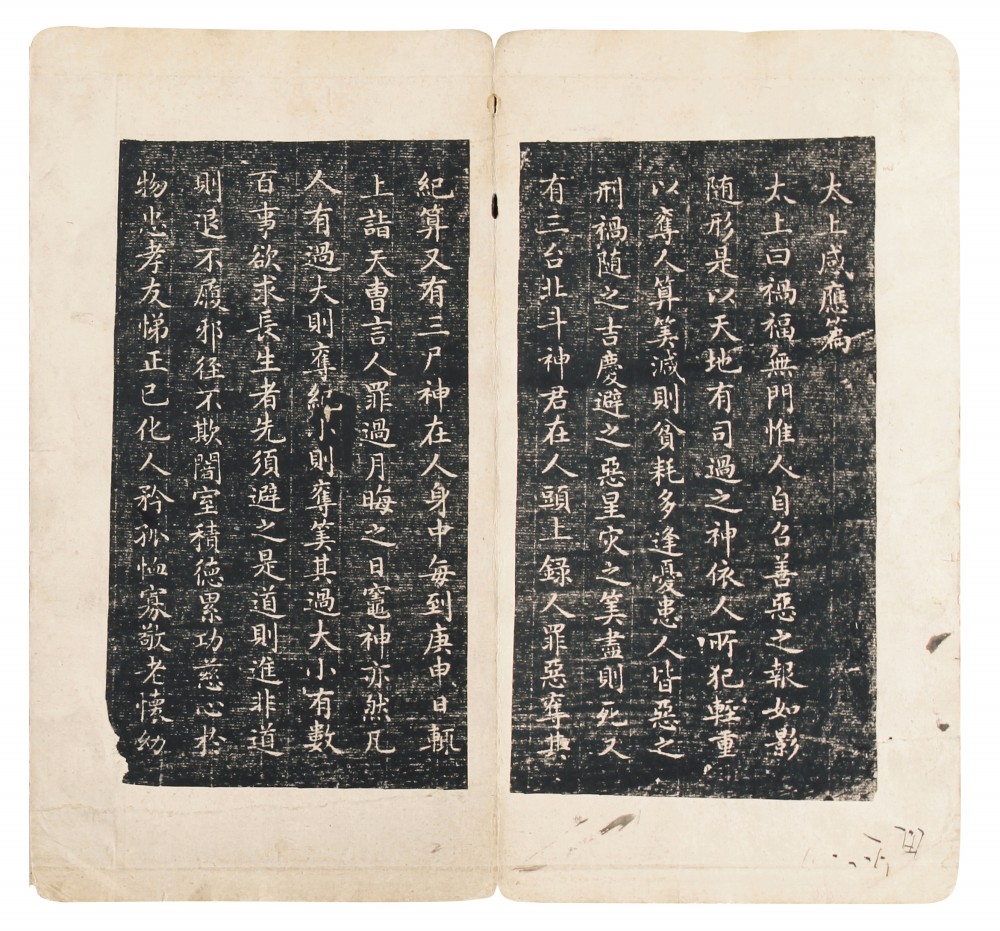 太上感應篇
太上曰禍福無門惟人自召善惡之報如影
随形是以天地有司過之神依人所犯輕重
以奪人算筭減則貧耗多逢憂患人皆惡之
刑禍随之吉慶避之惡星灾之筭盡則死又
有三台北斗神君在人頭上錄人罪惡奪其
紀算又有三尸神在人身中每到庚申日輒
上詣天曹言人罪過月晦之日竈神亦然凡
人有過大則奪紀小則奪筭其過大小有數
百事欲求長生者先須避之是道則進非道
則退不履邪徑不欺闇室積德累功慈心於
物忠孝友悌正己化人矜孤恤寡敬老懷幼